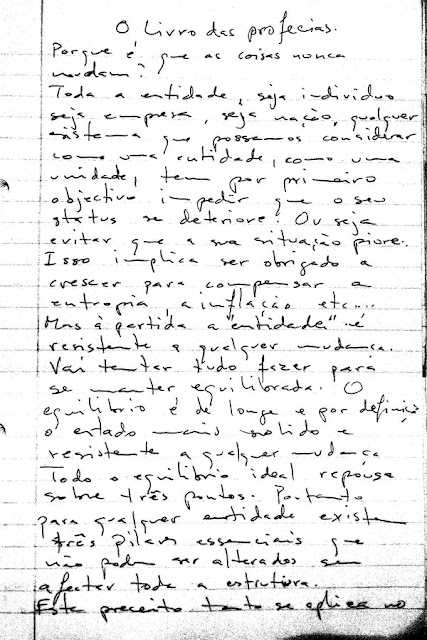 O Livro das profecias.
Porque é que as coisas nunca
mudam?
Toda a entidade, seja individuo
seja empresa, seja nação, qualquer
sistema que possamos considerar
como uma entidade, como uma
unidade, tem por primeiro
objectivo impedir que o seu
status se deteriore. Ou seja
evitar que a sua situação piore.
Isso implica ser obrigado a
crescer para compensar a
entropia, a inflação etc...
Mas à partida a "entidade" é
resistente a qualquer mudança.
Vai tentar tudo fazer para
se manter equilibrada. O
equilibrio é de longe e por definiçã
o estado mais sólido e
resistente a qualquer mudança
Todo o equilibrio ideal repousa
sobre três pontos. Portanto
para qualquer entidade existem
três pilares essenciais que
não podem ser alterados sem
afectar toda a estrutura.
Este preceito tanto se aplica no